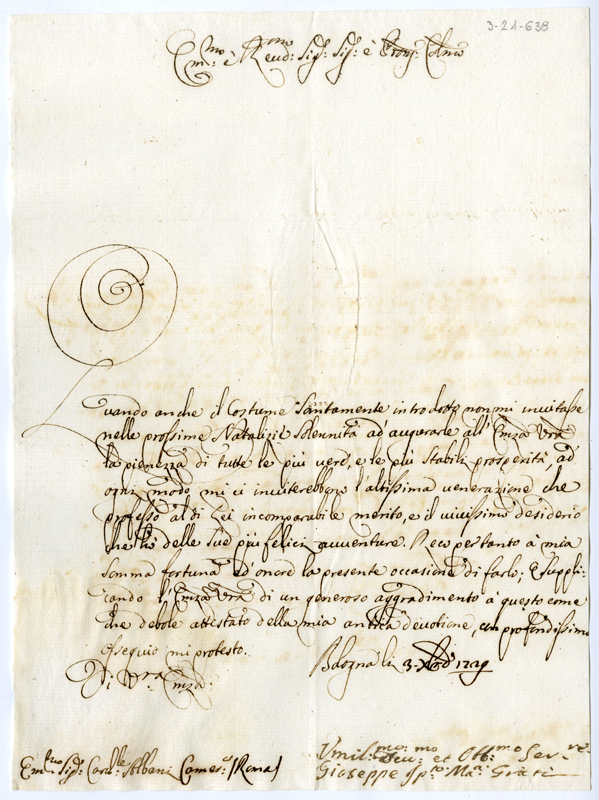 3-21-638
Em:mo è Reud:mo Sig:r Sig:r è Pron: Colmo
Quando anche il Costume Santamente introdotto non mi inuitasse
nelle prossime Natalizie Solennità ad' augurarle all' Emza Vra
la pienezza di tutte le più vere, e le più stabili prosperità, ad
ogni modo mi ci inuiterebbero l'altissima venerazione che
professo al di Lei incomparabile merito, e il viuissimo desiderio
che hò delle sue più felici auuenture. Reco pertanto à mia
somma fortuna d'onore la presente occasione di farlo; e suppli:
cando l'Emza Vra di un generoso aggradimento à questo come
che debole attestato della mia antica deuotione, con profondissimo
ossequio mi protesto.
Bologna li 3 Xbre 1729
Di Vra Emza:
Em:mo Sig:r Card:le Albani Camer:o (Roma)
Vmil:mo Deu:mo et Obb:mo Ser:re
Gioseppe Ip:to Ma: Grati